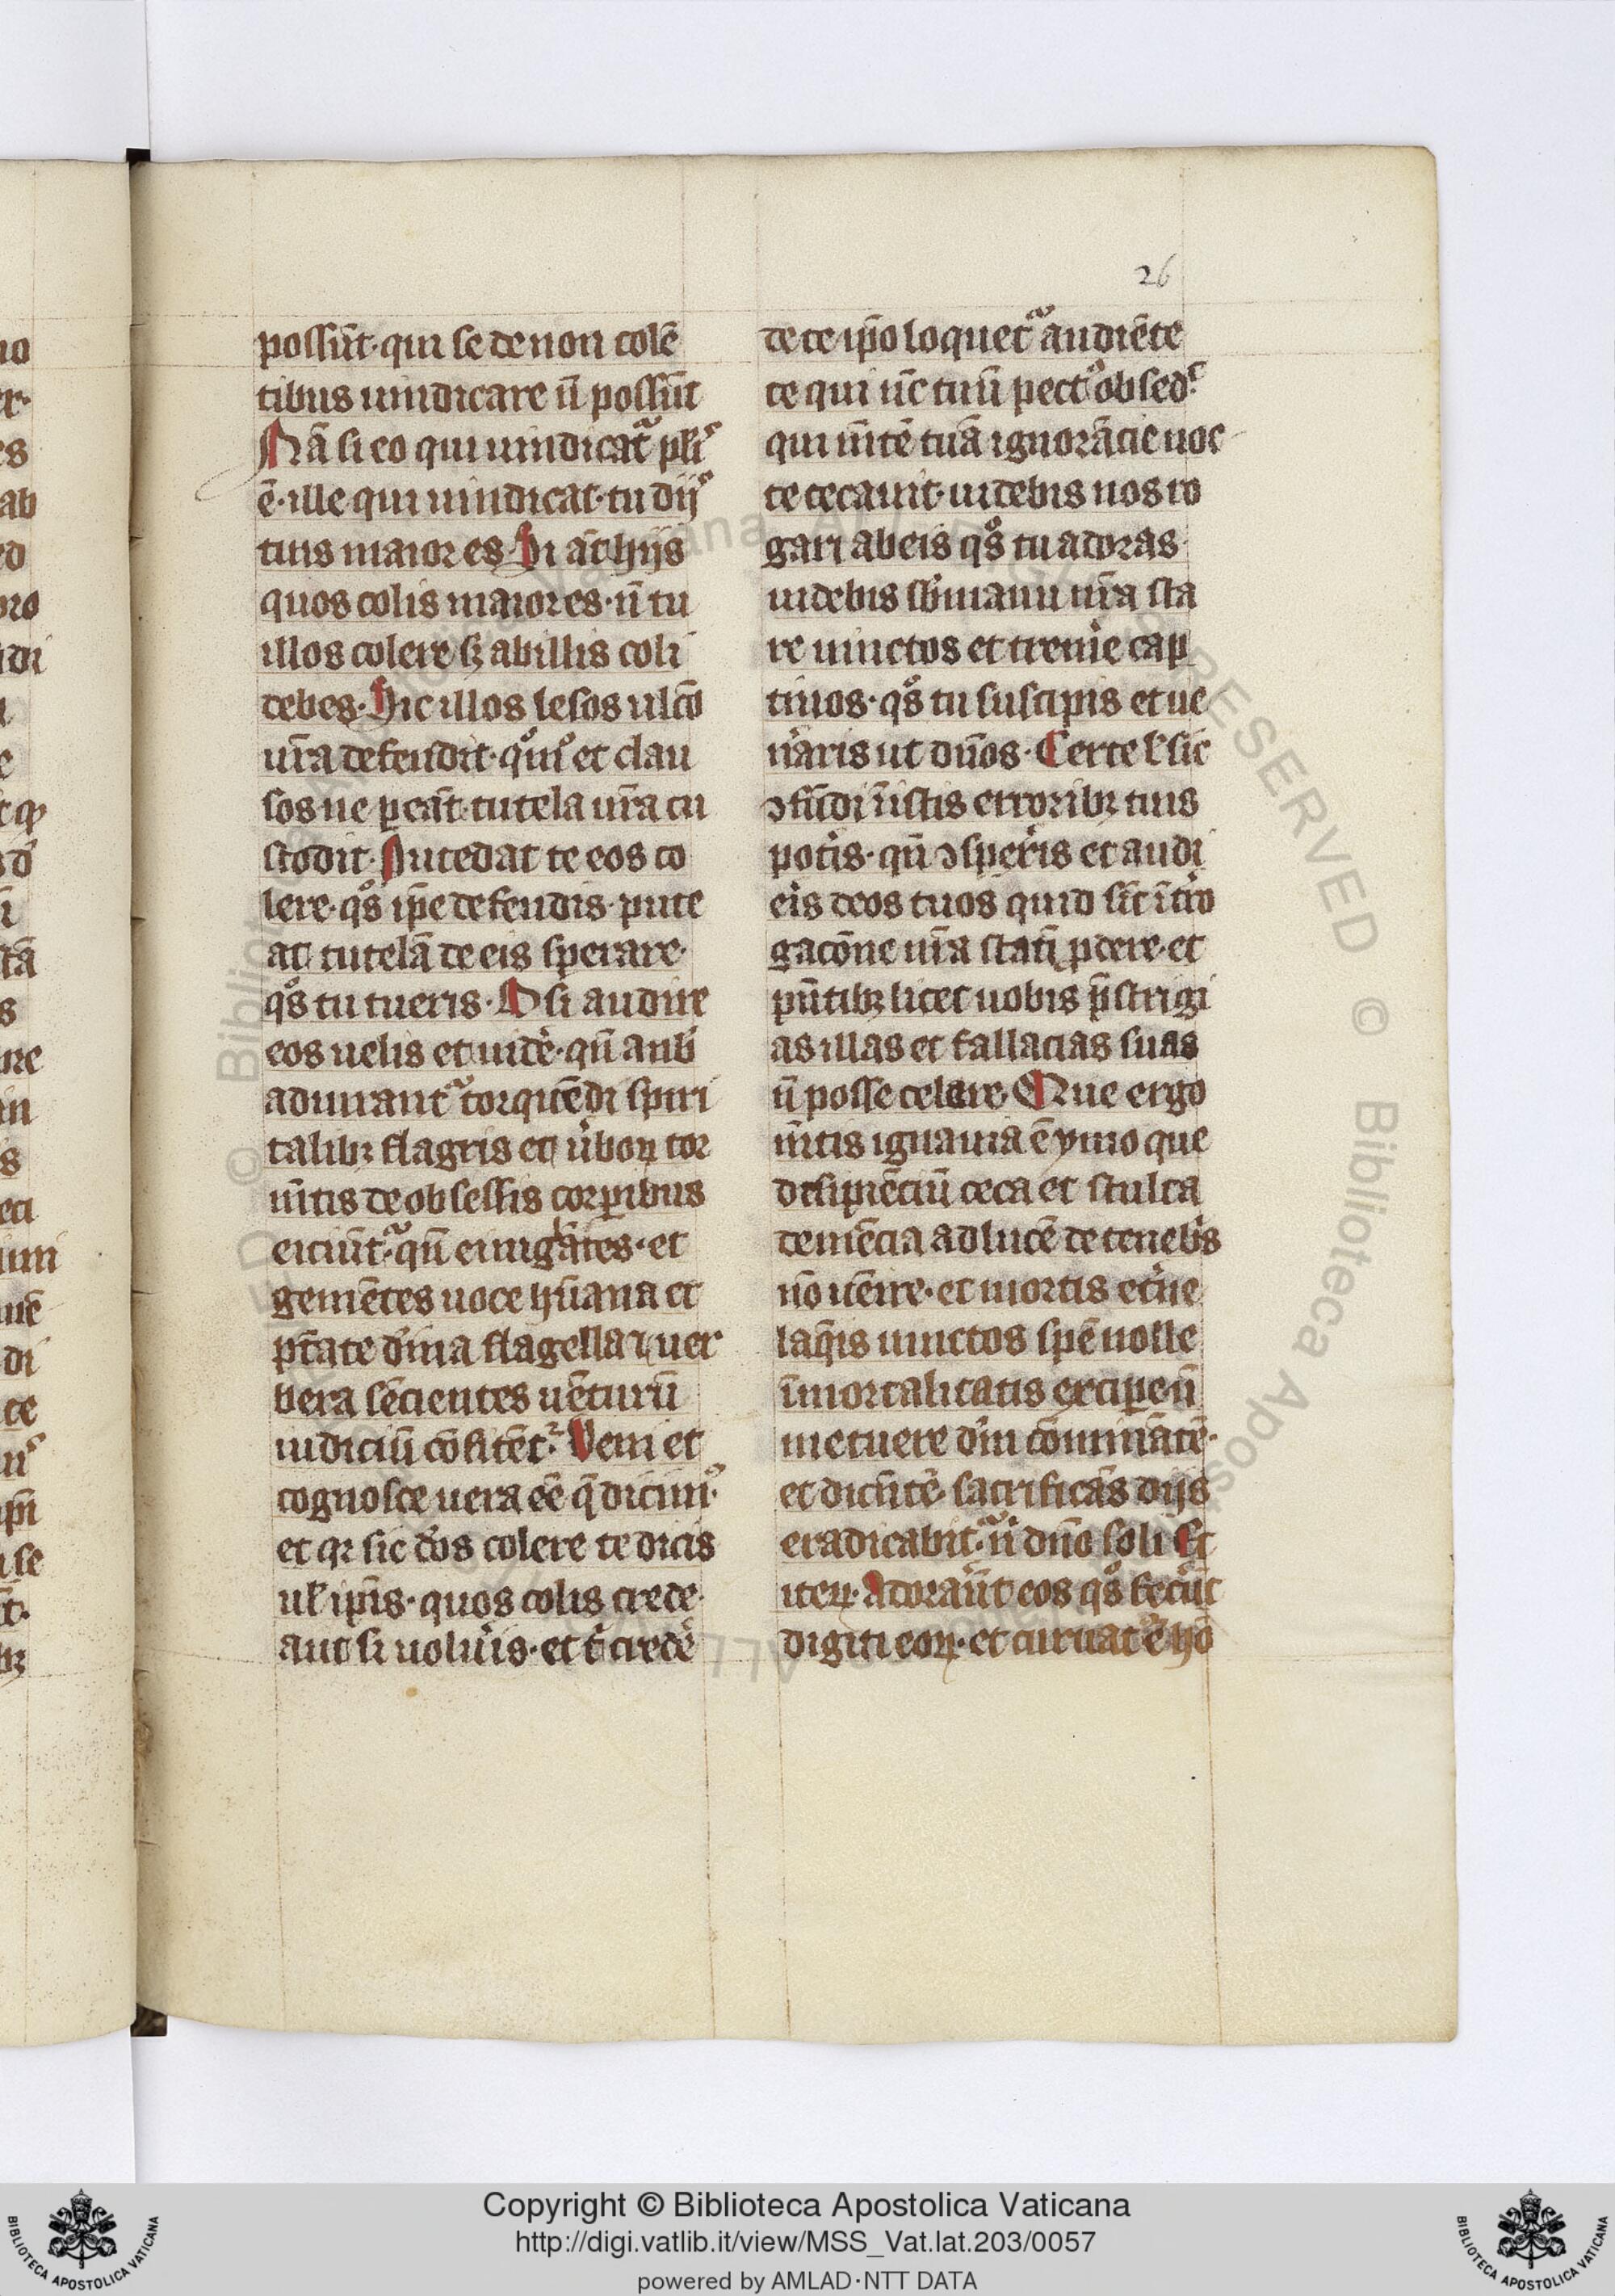 26
possūt·qui se de non colē
tibus uindicare n̄ possūt
Nā si eo qui uindicatᷓ pl̄iꝰ
ē·ille qui uindicat·tu dijꝰ
tuis maior es Si aūt hijs
quos colis maior es·n̄ tu
illos colere sꝫ ab illis coli
debes·Sic illos lesos ulcō
ur̄a defendit·qͦuſͦ et clau
sos ne ꝑeāt·tutela ur̄a cu
stodit·Pudedat te eos co
lere·qͦs ip̄e defendis·pude
at tutelā de eis sperare·
qͦs tu tueris·O si audire
eos uelis et uidē·qn̄ a nob̄
adiurantᷓ torquēdi spiri
talibꝫ flagris et ūboꝝ tor
mētis de obsessis corꝑibus
eiciūtᷓ·qn̄ eiulāntes·et
gemētes uoce hūana et
pt̄ate diūia flagella ⁊ uer
bera sēcientes uēturū
iudiciū cōfitētᷣ·Veni et
cognosce uera eē q̄ dicimꝰ·
et qꝛ sic deos colere te dicis
ul̄ ip̄is·quos colis crede·
aut si uolūis·et t̄ credē
de te ip̄o loquetᷓ audiēte
te qui nūc tuū pectꝰ obsedᷤ
qui mētē tuā ignorācie noc
te cecauit·uidebis nos ro
gari ab eis qͦs tu adoras·
uidebis sb̄ manu nr̄a sta
re uinctos et treme cap
tiuos·qͦs tu suscipis et ue
nāris ut dn̄os·Certe ul̄ sic
ↄfūdi ī istis erroribꝫ tuis
potis·qn̄ ↄsperis et audi
eis deos tuos quid sīt ītro
gacōne nr̄a statī ꝓdere·et
pn̄tibꝫ licet uobis p̄strigi
as illas et fallacias suas
n̄ posse celare·Que ergo
mētis ignauia ē ymo que
desipiēciū ceca et stulta
demēcia ad lucē de tenebīs
nō uēire·et mortis etn̄e
laq̄is uinctos spē nolle
īmortalitatis excipe·n̄
metuere dm̄ cōminātē·
et dicētē·sacrificās dijs
eradicabitᷓ·n̄ dn̄o soli Et
iteꝝ·Adorauūt eos qͦs fecūt
digiti eoꝝ·et curuatꝰ ē hō
Copyright © Biblioteca Apostolica Vaticana
http://digi.vatlib.it/view/MSS_Vat.lat.203/0057
powered by AMLAD·NTT DATA
BIBLIOTECA APOSTOLICA VATICANA
BIBLIOTECA APOSTOLICA VATICANA